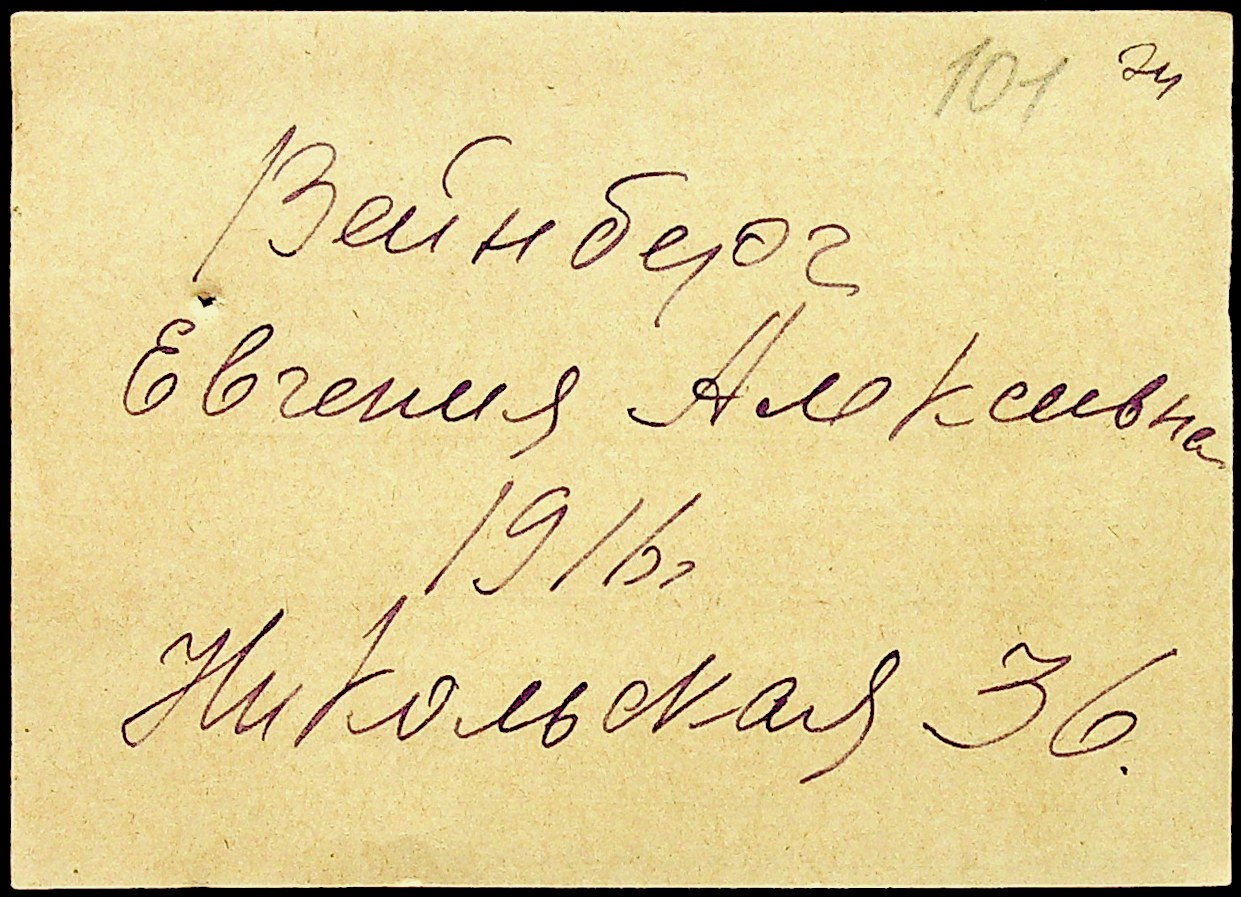 101
Вейнберг
Евгения Алексивна
1916г
Никольская 36.